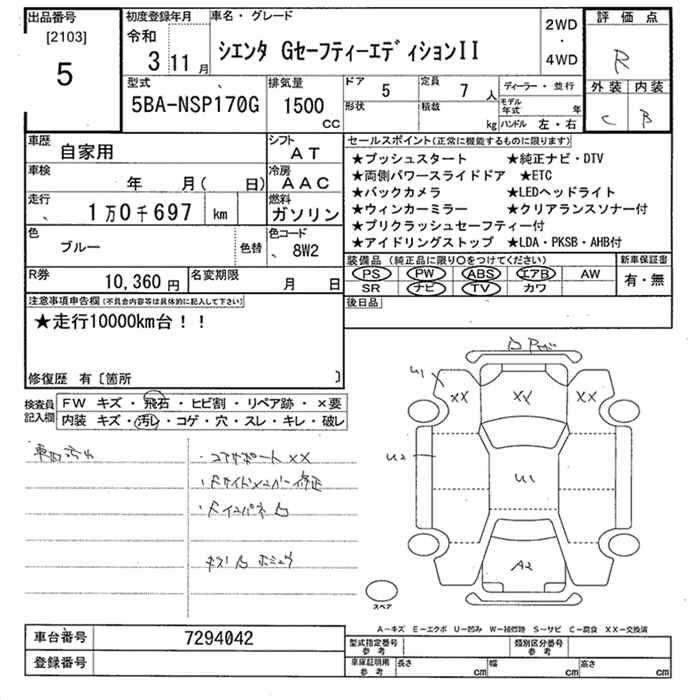 出品番号
[2103]
5
初度登録年月
令和
3 11月
車名・グレード
シエンタ GセーフティーエディションII
2WD
・
4WD
評価点
R
外装 内装
C B
型式
5BA-NSP170G
排気量
1500
CC
ドア
5
定員
7 人
形状
積載
kg
ディーラー・並行
モデル年式 年
ハンドル 左・右
車歴
自家用
シフト
AT
車検
年 月( 日)
冷房
AAC
走行
1万0千697 km
燃料
ガソリン
色
ブルー
色替
色コード
8W2
R券
10,360円
名変期限
月 日
セールスポイント(正常に機能するものに限ります)
★プッシュスタート ★純正ナビ・DTV
★両側パワースライドドア ★ETC
★バックカメラ ★LEDヘッドライト
★ウィンカーミラー ★クリアランスソナー付
★プリクラッシュセーフティー付
★アイドリングストップ ★LDA・PKSB・AHB付
装備品(純正品に限り○をつけてください)
PS PW ABS エアB AW
SR ナビ TV カワ
新車保証書
有・無
後日品
注意事項申告欄(不具合内容等は具体的に記入して下さい)
★走行10000km台!!
修復歴 有〔箇所 〕
検査員記入欄
FW キズ・飛石・ヒビ割・リペア跡・×要
内装 キズ・汚レ・コゲ・穴・スレ・キレ・破レ
・コアサポートXX
U1
XX
XX
XX
U2
U1
A2
スペア
A−キズ E−エクボ U−凹み W−補修跡 S−サビ C−腐食 XX−交換済
車台番号
7294042
登録番号
型式指定番号
参考
類別区分番号
参考
車庫証明用
参考
長さ cm
幅 cm
高さ cm